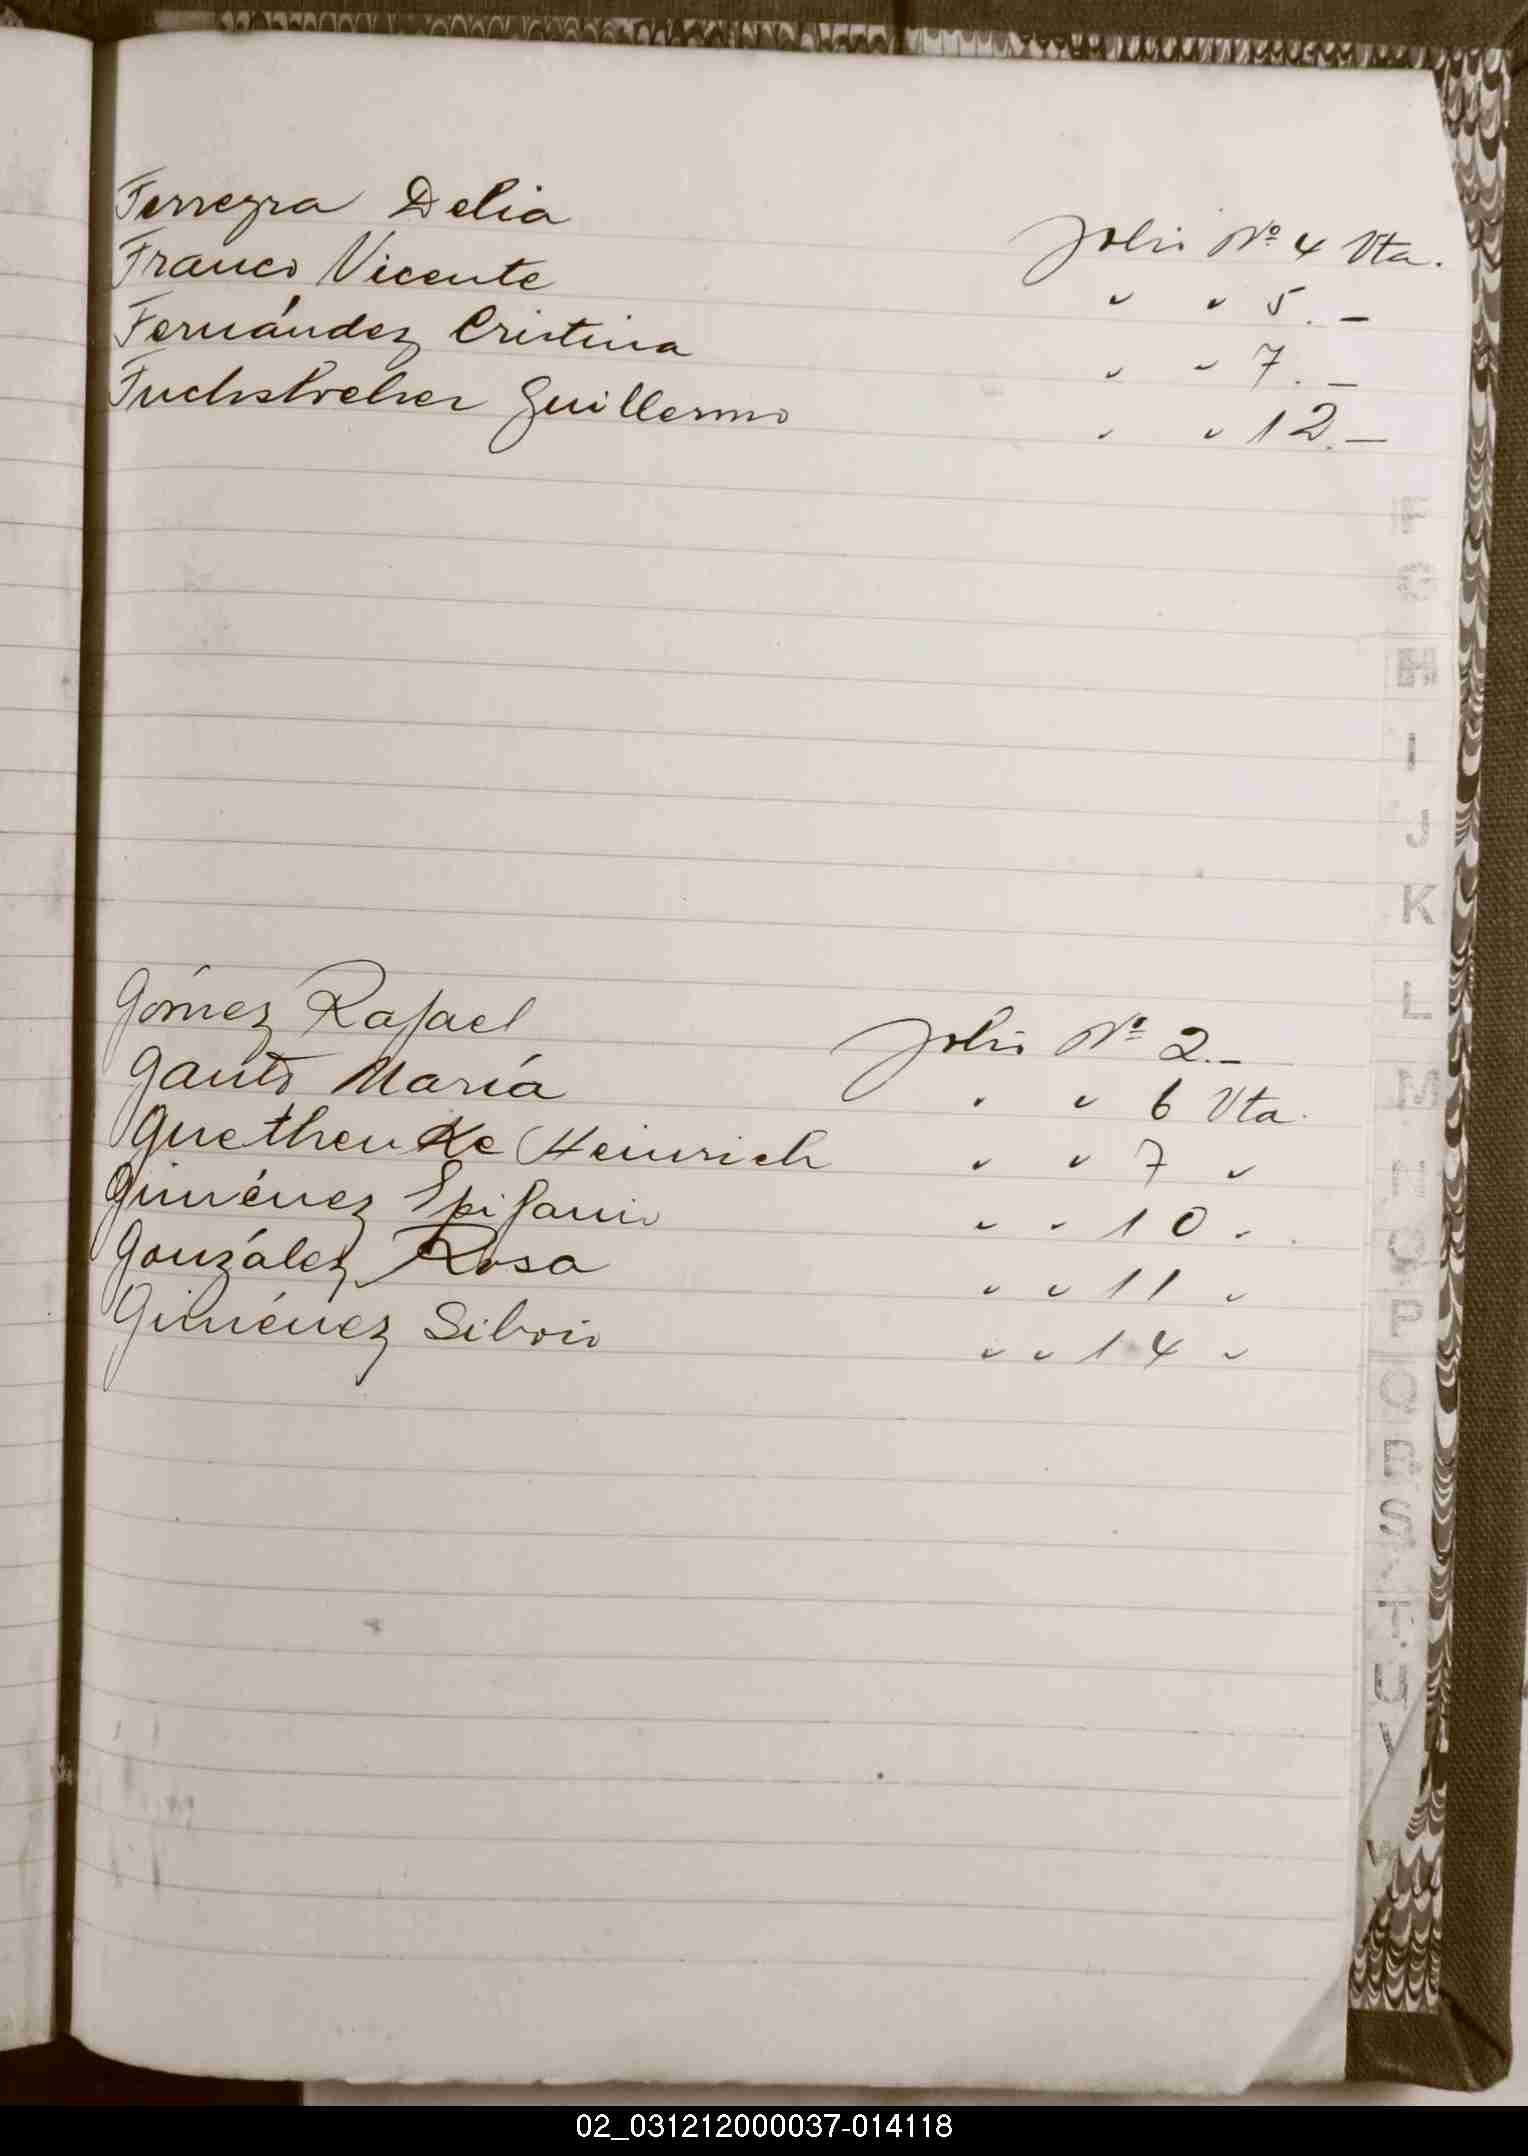 Ferreyra Delia Folio Nº 4 Vta.
Franco Vicente " " 5.-
Fernández Cristina " " 7.-
Guillermo " " 12.-
Gómez Rafael Folio Nº 2.-
Gauto María " " 6 Vta.
Guethenke Heinrich " " 7 "
Giménez Epifanio " " 10 "
González Rosa " " 11 "
Giménez Silvio " " 14 "
F
G
H
I
J
K
L
M
N
O
P
Q
R
S
T
U
V
02_031212000037-014118